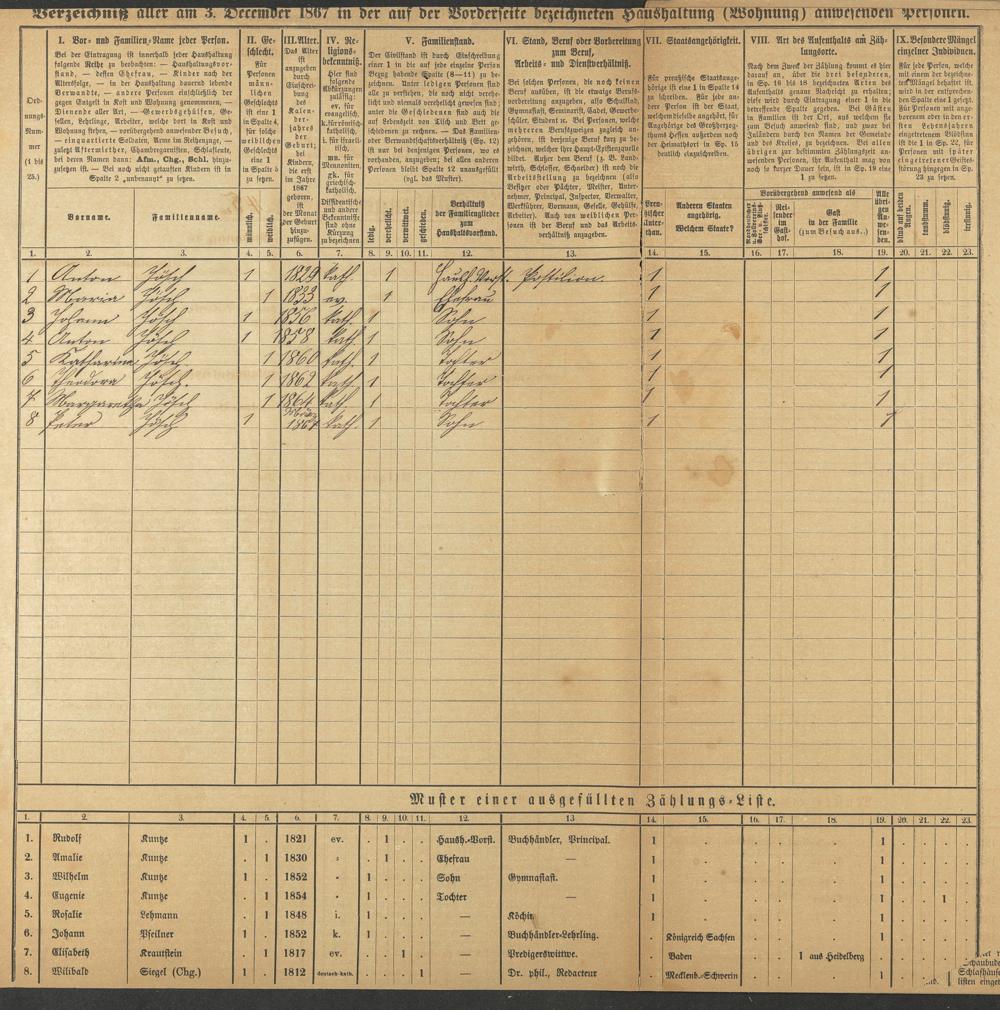 Verzeichniß aller am 3. December 1867 in der auf der Vorderseite bezeichneten Haushaltung (Wohnung) anwesenden Personen.
Ord-
nungs-
Num-
mer
(1 bis
25.)
I. Vor- und Familien-Name jeder Person.
Bei der Eintragung ist innerhalb jeder Haushaltung
folgende Reihe zu beobachten: — Haushaltungsvor-
stand, — dessen Ehefrau, — Kinder nach der
Altersfolge, — in der Haushaltung dauernd lebende
Verwandte, — andere Personen einschließlich der
gegen Entgelt in Kost und Wohnung genommenen, —
Dienende aller Art, — Gewerbsgehülfen, Ge-
sellen, Lehrlinge, Arbeiter, welche dort in Kost und
Wohnung stehen, — vorübergehend anwesender Besuch,
— einquartierte Soldaten, Arme im Reihenzuge, —
zuletzt Aftermiether, Chambregarnisten, Schlafleute,
bei deren Namen dann: Afm., Chg., Schl. hinzu-
zusetzen ist. — Bei noch nicht getauften Kindern ist in
Spalte 2 „unbenannt" zu setzen.
Vorname. Familienname.
II. Ge-
schlecht.
Für
Personen
männ-
lichen
Geschlechts
ist eine 1
in Spalte 4,
für solche
weiblichen
Geschlechts
eine 1
in Spalte 5
zu setzen.
männlich. weiblich.
III. Alter.
Das Alter
ist
anzugeben
durch
Einschrei-
bung
des
Kalen-
der-
jahres
der
Geburt;
bei
Kindern,
die erst
im Jahre
1867
geboren,
ist
der Monat
der Geburt
hinzu-
zufügen.
IV. Re-
ligions-
bekenntniß.
Hier sind
folgende
Abkürzungen
zulässig:
ev. für
evangelisch,
k. für römisch-
katholisch,
i. für israeli-
tisch,
mn. für
Mennoniten,
gk. für
griechisch-
katholisch,
Dissidentische
und andere
Bekenntnisse
sind ohne
Kürzung
zu bezeichnen.
V. Familienstand.
Der Civilstand ist durch Einschreibung
einer 1 in die auf jede einzelne Person
Bezug habende Spalte (8—11) zu be-
zeichnen. Unter ledigen Personen sind
alle zu verstehen, die noch nicht verehe-
licht und niemals verehelicht gewesen sind;
unter die Geschiedenen sind auch die
auf Lebenszeit von Tisch und Bett ge-
schiedenen zu rechnen. — Das Familien-
oder Verwandtschaftsverhältniß (Sp. 12)
ist nur bei denjenigen Personen, wo es
vorkommt, anzugeben; bei allen anderen
Personen bleibt Spalte 12 unausgefüllt
(vgl. das Muster).
ledig. verehelicht. verwitwet. geschieden.
Verhältniß
der Familienglieder
zum
Haushaltsvorstand.
VI. Stand, Beruf oder Vorbereitung
zum Beruf,
Arbeits- und Dienstverhältniß.
Bei solchen Personen, die noch keinen
Beruf ausüben, ist die etwaige Berufs-
vorbereitung anzugeben, also Schulkind,
Gymnasiast, Seminarist, Cadet, Gewerbe-
schüler, Student ec. Bei Personen, welche
mehreren Berufszweigen zugleich an-
gehören, ist derjenige Beruf kurz zu be-
zeichnen, welcher ihre Haupt-Existenzquelle
bildet. Außer dem Beruf (z. B. Land-
wirth, Schlosser, Schneider) ist noch die
Arbeitsstellung zu bezeichnen (also
Besitzer oder Pächter, Meister, Unter-
nehmer, Principal, Inspector, Verwalter,
Werkführer, Vormann, Geselle, Gehülfe,
Arbeiter). Auch von weiblichen Per-
sonen ist der Beruf und das Arbeits-
verhältniß anzugeben.
VII. Staatsangehörigkeit.
Für preußische Staatsange-
hörige ist eine 1 in Spalte 14
zu schreiben. Für jede an-
dere Person ist der Staat,
welchem dieselbe angehört, für
Angehörige des Großherzog-
thums Hessen außerdem noch
der Heimathsort in Sp. 15
deutlich einzuschreiben.
Preu-
ßischer
Unter-
than.
Anderen Staaten
angehörig.
Welchem Staate?
VIII. Art des Aufenthalts am Zäh-
lungsorte.
Nach dem Zweck der Zählung kommt es hier
darauf an, über die drei besonderen,
in Sp. 16 bis 18 bezeichneten Arten des
Aufenthalts genaue Nachricht zu erhalten;
dies wird durch Eintragung einer 1 in die
betreffende Spalte gegeben. Bei Gästen
in Familien ist der Ort, aus welchem sie
zum Besuch anwesend sind, und zwar bei
Inländern durch den Namen der Gemeinde
und des Kreises, zu bezeichnen. Bei allen
übrigen zur bestimmten Zählungszeit an-
wesenden Personen, ihr Aufenthalt mag von
noch so kurzer Dauer sein, ist in Sp. 19 eine
1 zu setzen.
Vorübergehend anwesend als
Rei-
sender
im
Gast-
hof.
Gast
in der Familie
(zum Besuch aus..)
Alle
übri-
gen
An-
we-
sen-
den.
IX. Besondere Mängel
einzelner Individuen.
Für jede Person, welche
mit einem der bezeichne-
ten Mängel behaftet ist,
wird in der entsprechen-
den Spalte eine 1 gesetzt.
Für Personen mit ange-
borenem oder in den er-
sten Lebensjahren
eingetretenem Blödsinn
ist die 1 in Sp. 22, für
Personen mit später
eingetretener Geistes-
störung hingegen in Sp.
23 zu setzen.
blind auf beiden
Augen. taubstumm. blödsinnig. irrsinnig.
1. 2. 3. 4. 5. 6. 7. 8. 9. 10. 11. 12. 13. 14. 15. 16. 17. 18. 19. 20. 21. 22. 23.
1 Anton Jösch 1 1829 kath 1 Haush. Vorst. Postilion. 1 1
2 Maria Jösch 1 1833 ev. 1 Ehefrau 1 1
3 Johann Jösch 1 1856 kath 1 Sohn 1 1
4 Anton Jösch 1 1858 kath 1 Sohn 1 1
5 Katharina Jösch 1 1860 kath 1 Tochter 1 1
6 Theodora Jösch. 1 1862 kath 1 Tochter 1 1
7 Margaretha Jösch 1 1864 kath 1 Tochter 1 1
8 Peter Jösch 1 1867 kath. 1 Sohn 1 1
Muster einer ausgefüllten Zählungs-Liste.
1. 2. 3. 4. 5. 6. 7. 8. 9. 10. 11. 12. 13 14. 15. 16. 17. 18. 19. 20. 21. 22. 23.
1. Rudolf Kuntze 1 . 1821 ev. . 1 . . Haush.-Vorst. Buchhändler, Principal. 1 . . . . 1 . . . .
2. Amalie Kuntze . 1 1830 „ . 1 . . Ehefrau — 1 . . . . 1 . . . .
3. Wilhelm Kuntze 1 . 1852 „ 1 . . . Sohn Gymnasiast. 1 . . . . 1 . . . .
4. Eugenie Kuntze . 1 1854 „ 1 . . . Tochter — 1 . . . . 1 . . 1 .
5. Rosalie Lehmann . 1 1848 i. 1 . . . — Köchin 1 . . . . 1 . . . .
6. Johann Pfeilner 1 . 1852 k. 1 . . . — Buchhändler-Lehrling. . Königreich Sachsen . . . 1 . . . .
7. Elisabeth Krautstein . 1 1817 ev. . . 1 . — Predigerswittwe. . Baden . . 1 aus Heidelberg . . . . .
8. Wilibald Siegel (Chg.) 1 . 1812 deutsch-kath. . . . 1 — Dr. phil., Redacteur . Mecklenb.-Schwerin . . . 1 . . . .